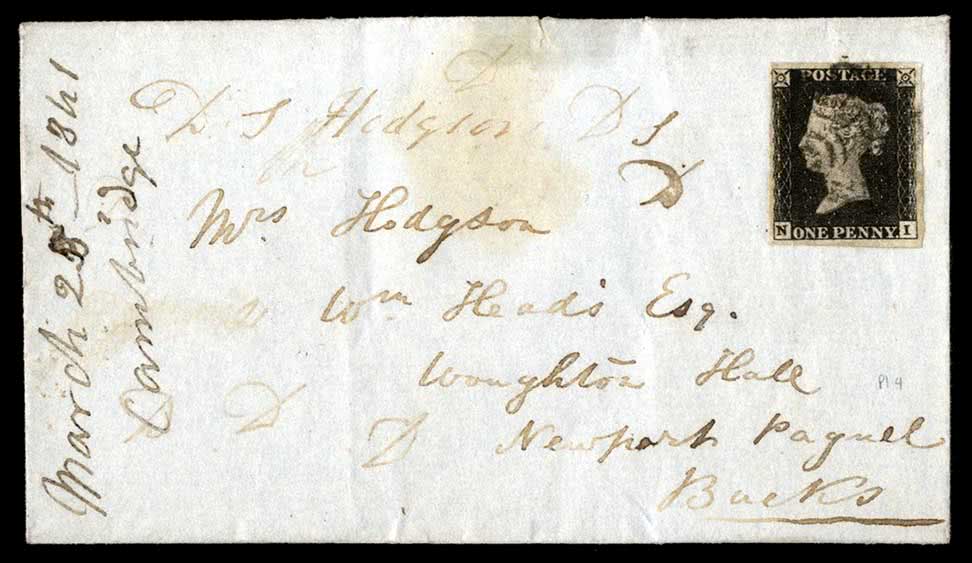 March 25th 1841
Cambridge
D
D S Hodgson D S
D
Mrs Hodgson
Wm Head's Esq.
Woughton Hall
D D Newport Pagnel
Bucks
POSTAGE
N ONE PENNY. I
Pl 4